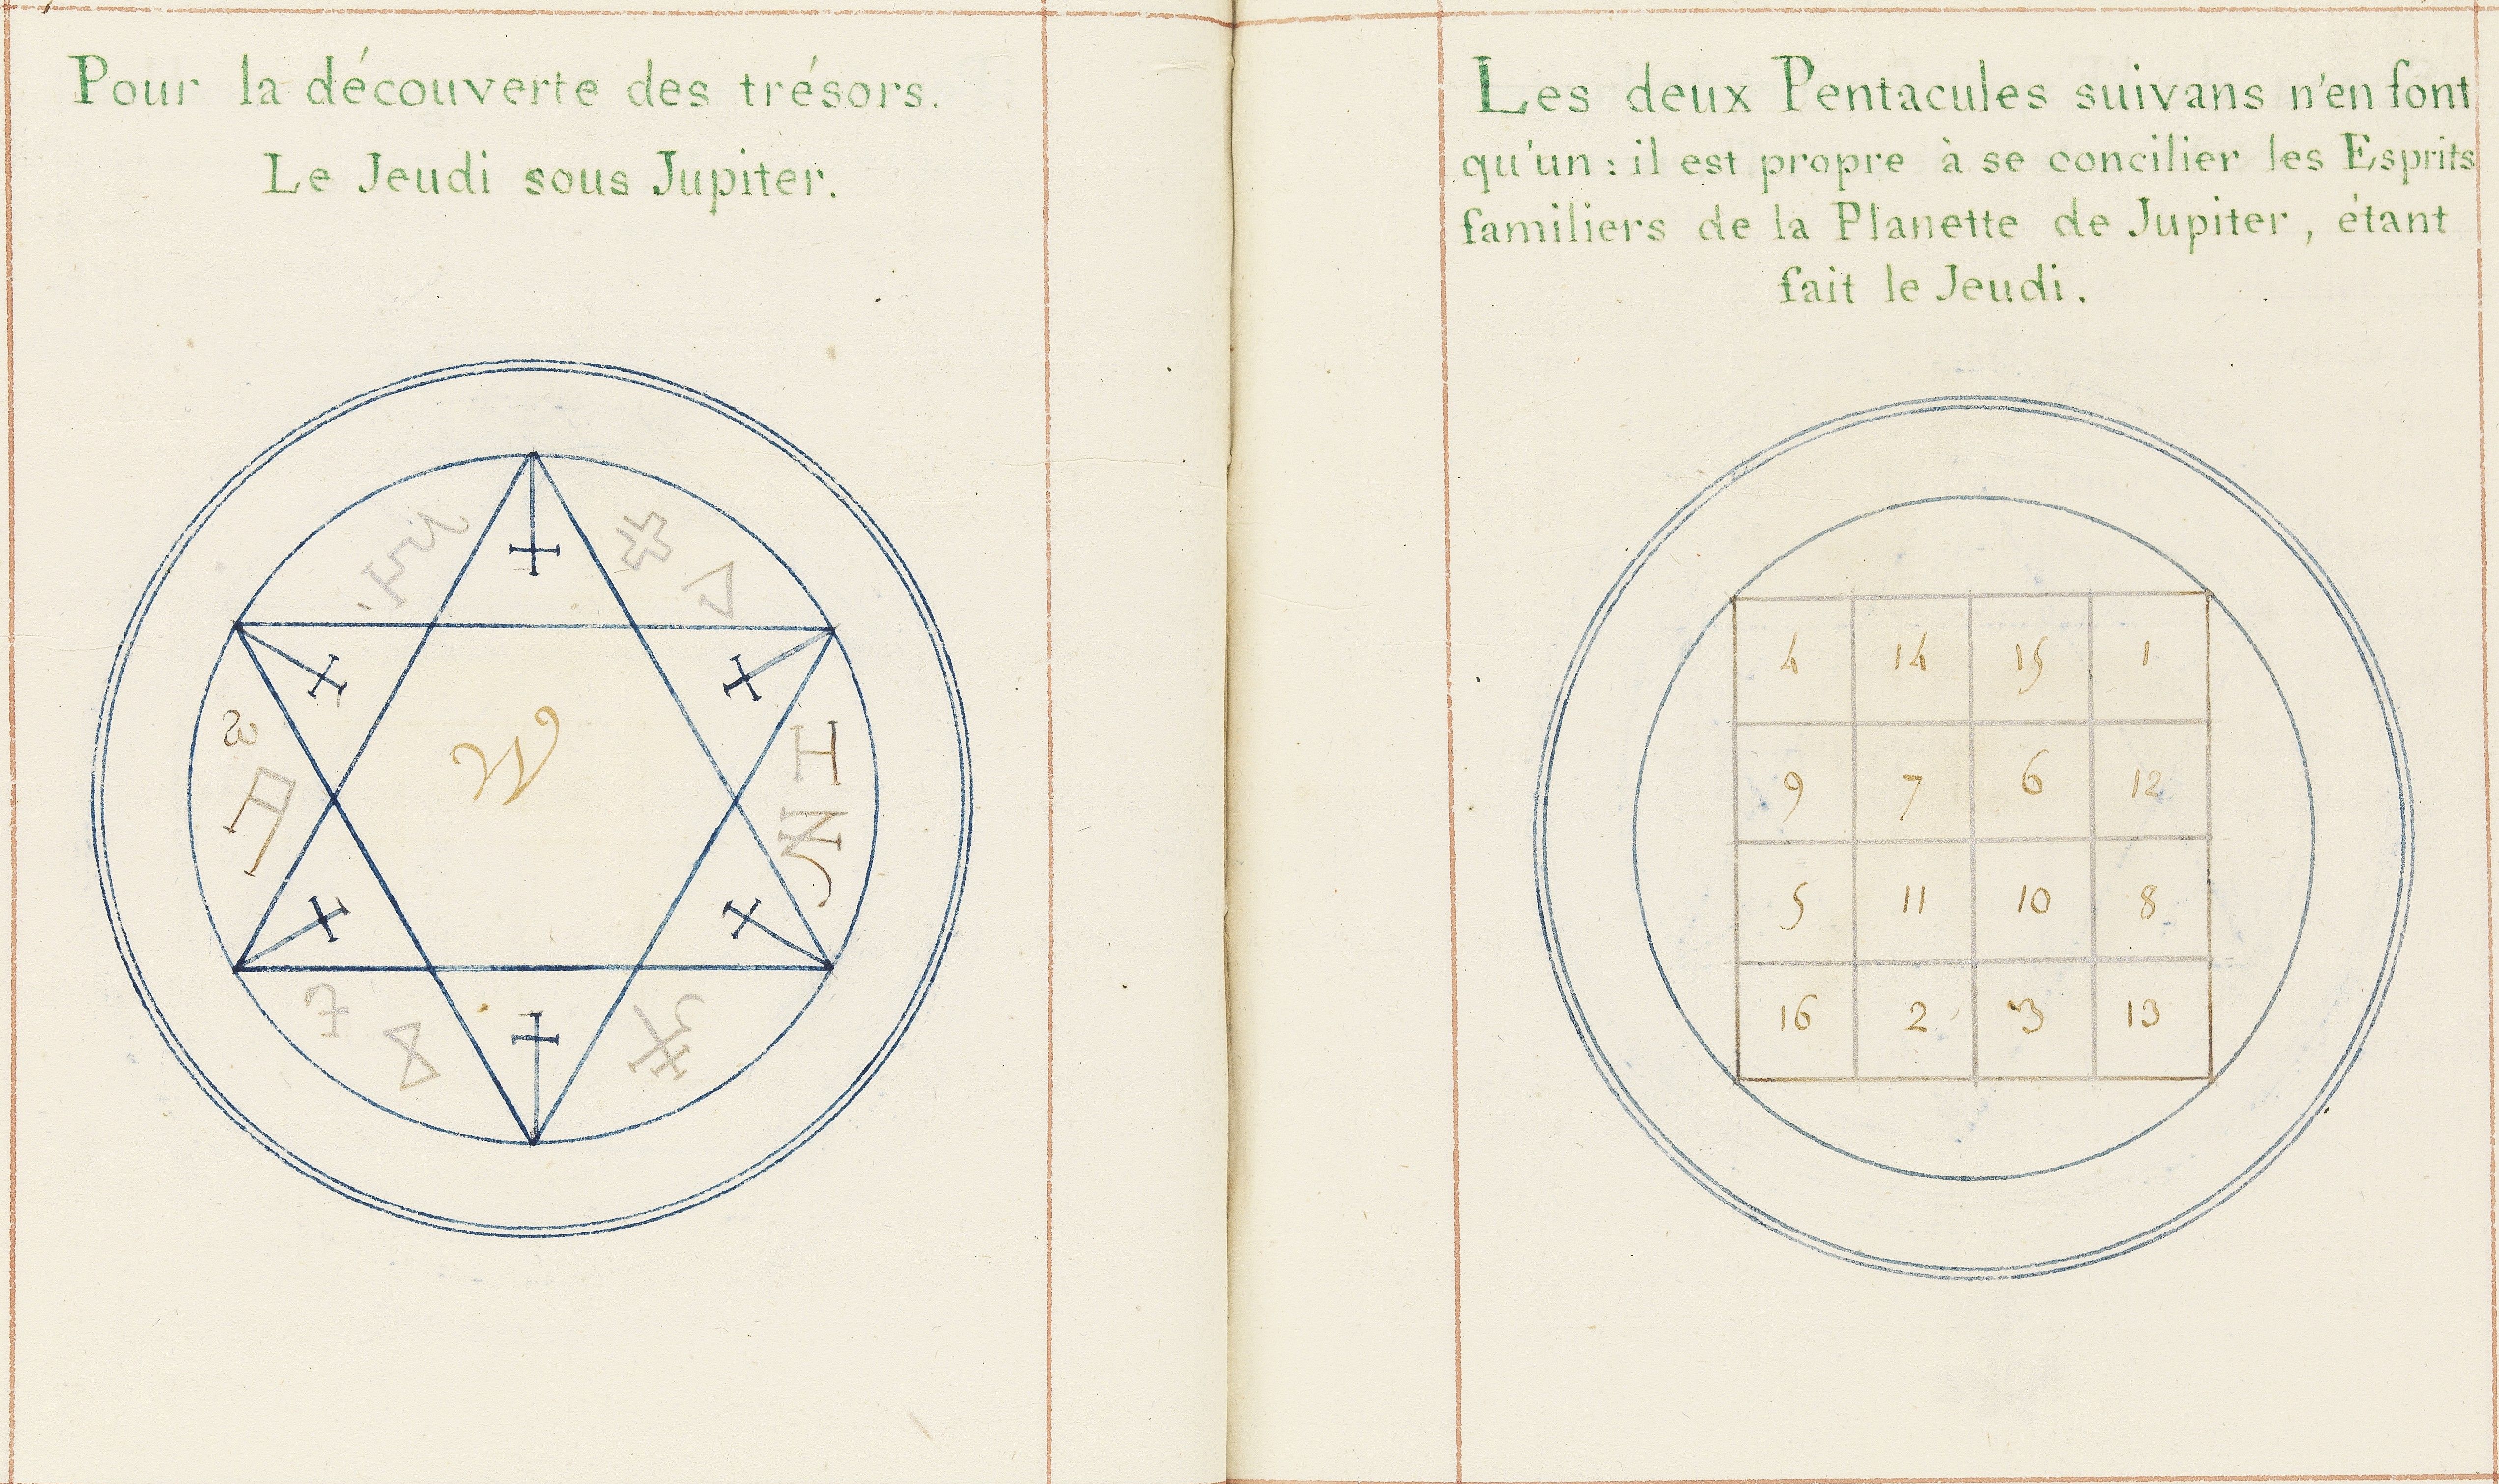 Pour la découverte des trésors.
Le Jeudi sous Jupiter.
Les deux Pentacules suivans n'en font
qu'un : il est propre à se concilier les Esprits
familiers de la Planette de Jupiter, étant
fait le Jeudi.
4 14 15 1
9 7 6 12
5 11 10 8
16 2 3 13